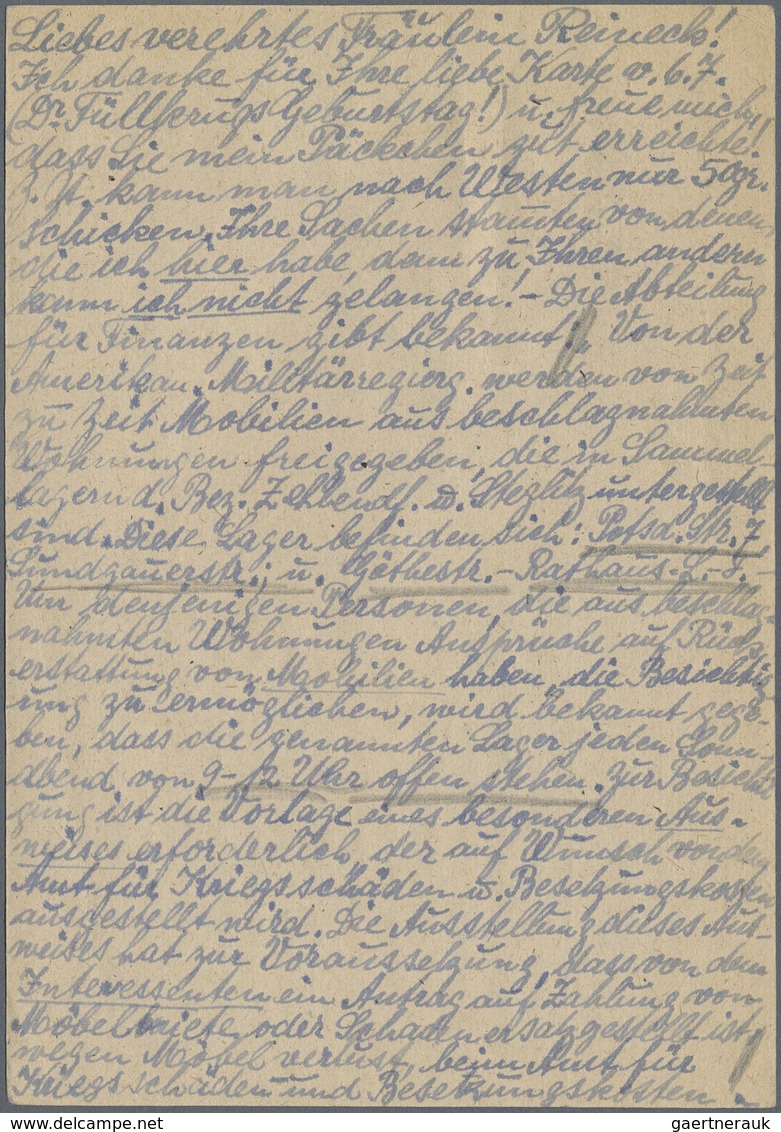 Liebes verehrtes Fräulein Reineck!
Ich danke für Ihre liebe Karte v. 6.7.
(Dr. Füllkrugs Geburtstag!) u. freue mich,
dass Sie mein Päckchen gut erreichte!
Z. Zt. kann man nach Westen nur 50gr.
schicken. Ihre Sachen stammten von denen,
die ich hier habe, denn zu Ihren andern
kann ich nicht gelangen! - Die Abteilung
für Finanzen gibt bekannt: „Von der
Amerikan. Militärregierg. werden von Zeit
zu Zeit Mobilien aus beschlagnahmten
Wohnungen freigegeben, die in Sammel-
lagern d. Bez. Zehlendf. u. Steglitz untergestellt
sind. Diese Lager befinden sich: Potsd. Str. 7
Sundgauerstr.; u. Göthestr. - Rathaus
Um denjenigen Personen, die aus beschlag-
nahmten Wohnungen Ansprüche auf Rück-
erstattung von Mobilien haben, die Besichtig-
ung zu ermöglichen, wird bekannt gege-
ben, dass die genannten Lager jeden Sonn-
abend von 9-12 Uhr offen stehen. Zur Besichti-
gung ist die Vorlage eines besonderen Aus-
weises erforderlich, der auf Wunsch von dem
Amt für Kriegsschäden u. Besetzungskosten
ausgestellt wird. Die Ausstellung dieses Aus-
weises hat zur Voraussetzung, dass von dem
Interessenten ein Antrag auf Zahlung von
Möbelmiete oder Schadenersatz gestellt ist,
wegen Möbelverlust, beim Amt für
Kriegsschäden und Besetzungskosten -
gaertnerauk